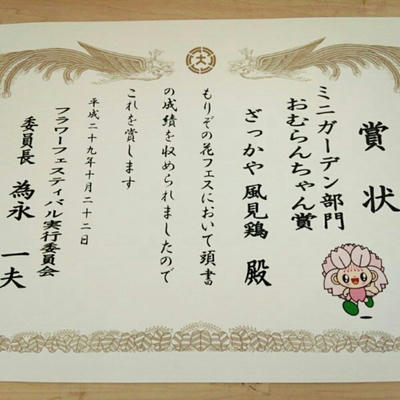 賞状
ミニガーデン部門
おむらんちゃん賞
ざっかや 風見鶏 殿
もりぞの花フェスにおいて頭書
の成績を収められましたので
これを賞します
平成二十九年十月二十二日
フラワーフェスティバル実行委員会
委員長 為永 一夫
大